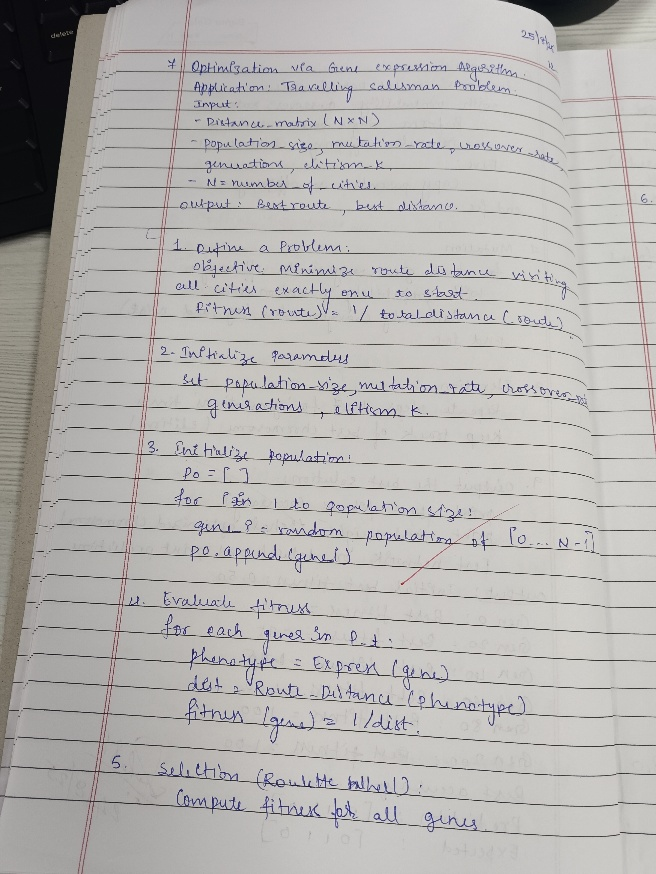 25/9/25
7. Optimization via Gene expression Algorithm.
Application: Travelling salesman Problem.
Input:
- Distance_matrix (N×N)
- population_size, mutation_rate, crossover_rate,
generations, elitism_k.
- N = number_of_cities.
output: Best route, best distance.
1. Define a Problem:
objective: Minimize route distance visiting
all cities exactly once to start.
Fitness (route) = 1/ total distance (route)
2. Initialize Parameters
set population-size, mutation_rate, crossover
generations, elitism k.
3. Initialize population:
P0 = [ ]
for i in 1 to population size:
gene i = random population of [0... N-1]
P0.append(gene i)
4. Evaluate fitness
for each genes in P_t:
phenotype = Express (gene)
dist = Route-Distance (phenotype)
fitness (gene) = 1/dist.
5. Selection (Roulette wheel):
Compute fitness for all genes.
6.
delete